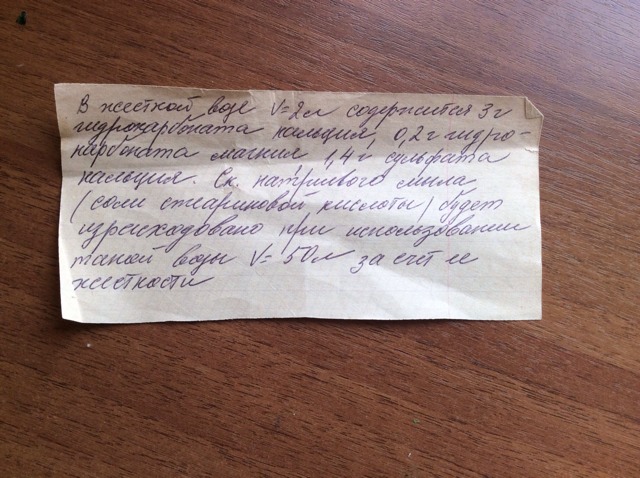 В жесткой воде V=2л содержится 3г
гидрокарбоната кальция, 0,2г гидро-
карбоната магния, 1,4г сульфата
кальция. Ск. натриевого мыла
(соли стеариновой кислоты) будет
израсходовано при использовании
такой воды V=50л за счет ее
жесткости